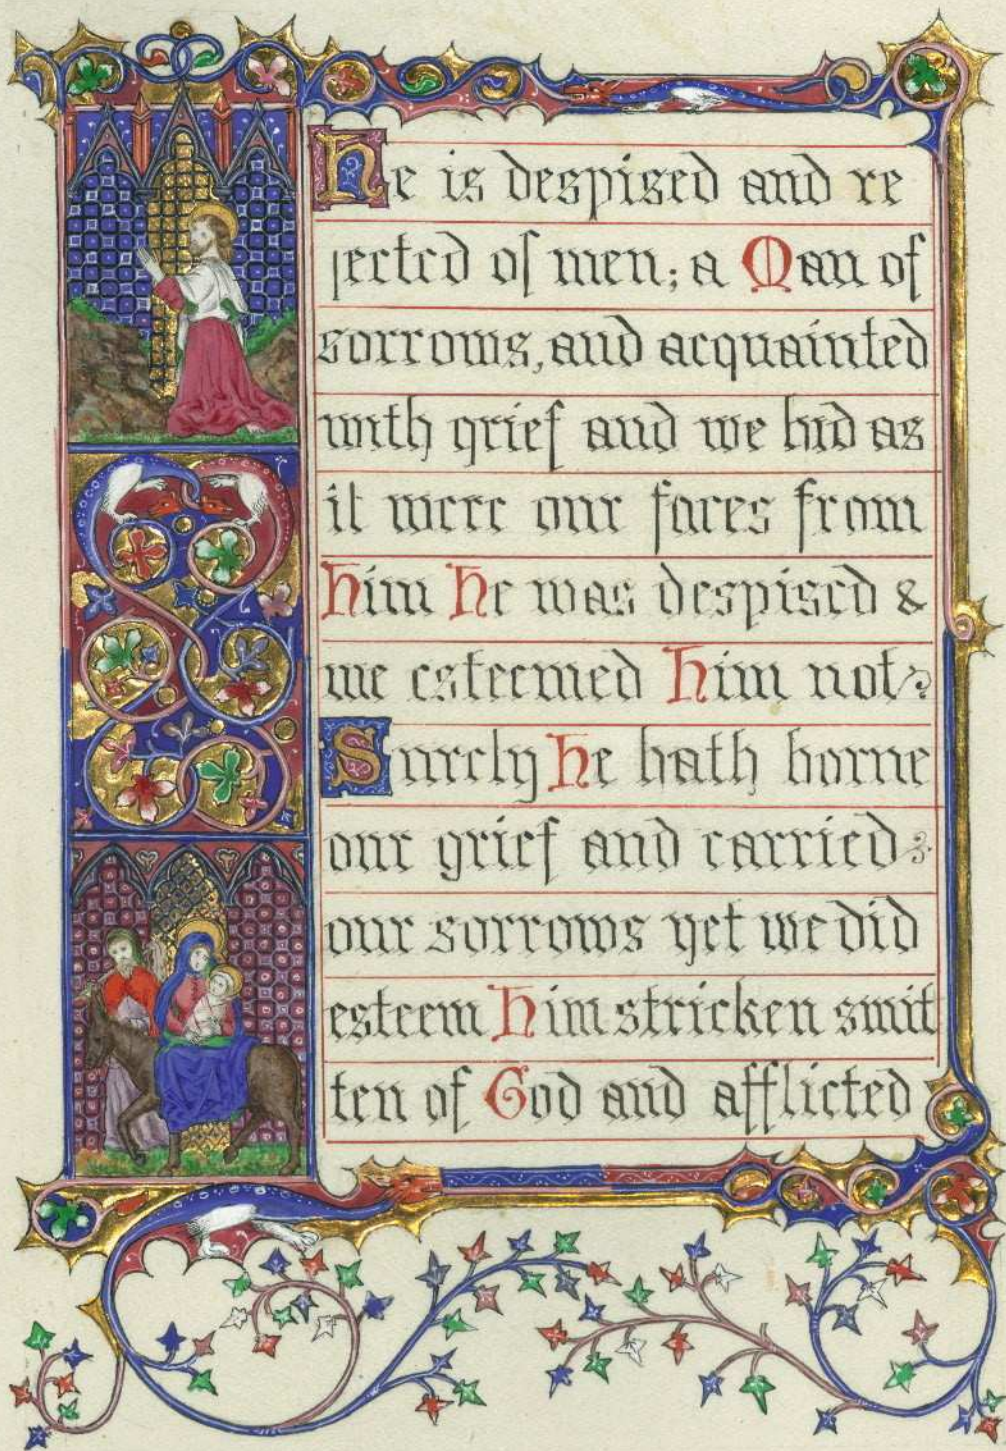 He is despised and re
jected of men; a Man of
sorrows, and acquainted
with grief and we hid as
it were our faces from
Him He was despised &
we esteemed Him not
Surely He hath borne
our grief and carried
our sorrows yet we did
esteem Him stricken smit
ten of God and afflicted